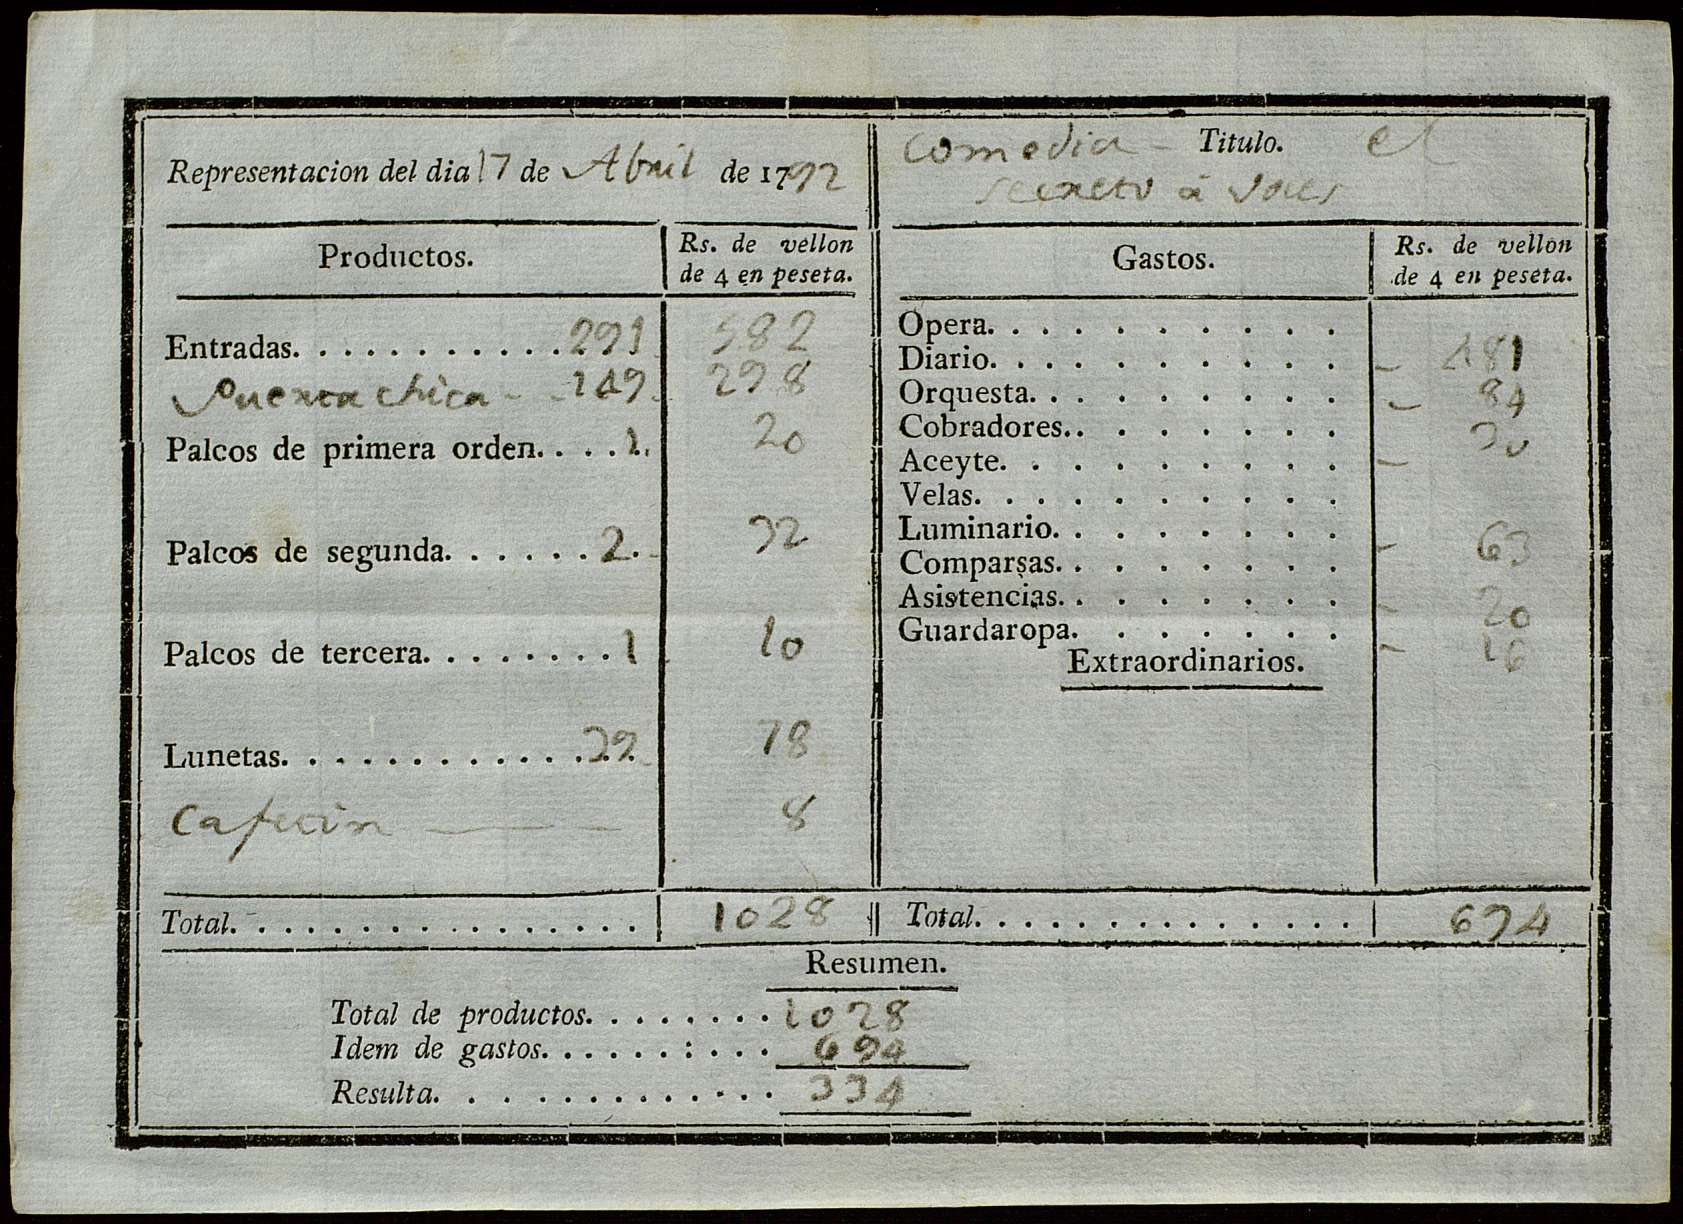 Representacion del dia 17 de Abril de 1792
Comedia - Titulo. el
secreto á voces
Productos. Rs. de vellon de 4 en peseta.
Entradas. . . . . . . . . . . 291 582
Puerta chica - - 149 298
Palcos de primera orden. . . . 1. 20
Palcos de segunda. . . . . . 2. 32
Palcos de tercera. . . . . . . . 1 10
Lunetas. . . . . . . . . . . . 39 78
Cafetin — 8
Total. . . . . . . . . . . . . . . . . 1028
Gastos. Rs. de vellon de 4 en peseta.
Opera. . . . . . . . . .
Diario. . . . . . . . . . - 481
Orquesta. . . . . . . . . - 84
Cobradores. . . . . . . . 30
Aceyte. . . . . . . . . . -
Velas. . . . . . . . . .
Luminario. . . . . . . . - 63
Comparsas. . . . . . . .
Asistencias. . . . . . . . - 20
Guardaropa. . . . . . . - 16
Extraordinarios.
Total. . . . . . . . . . . . . . . 694
Resumen.
Total de productos. . . . . . . . 1028
Idem de gastos. . . . . . : . . . 694
Resulta. . . . . . . . . . . . . 334